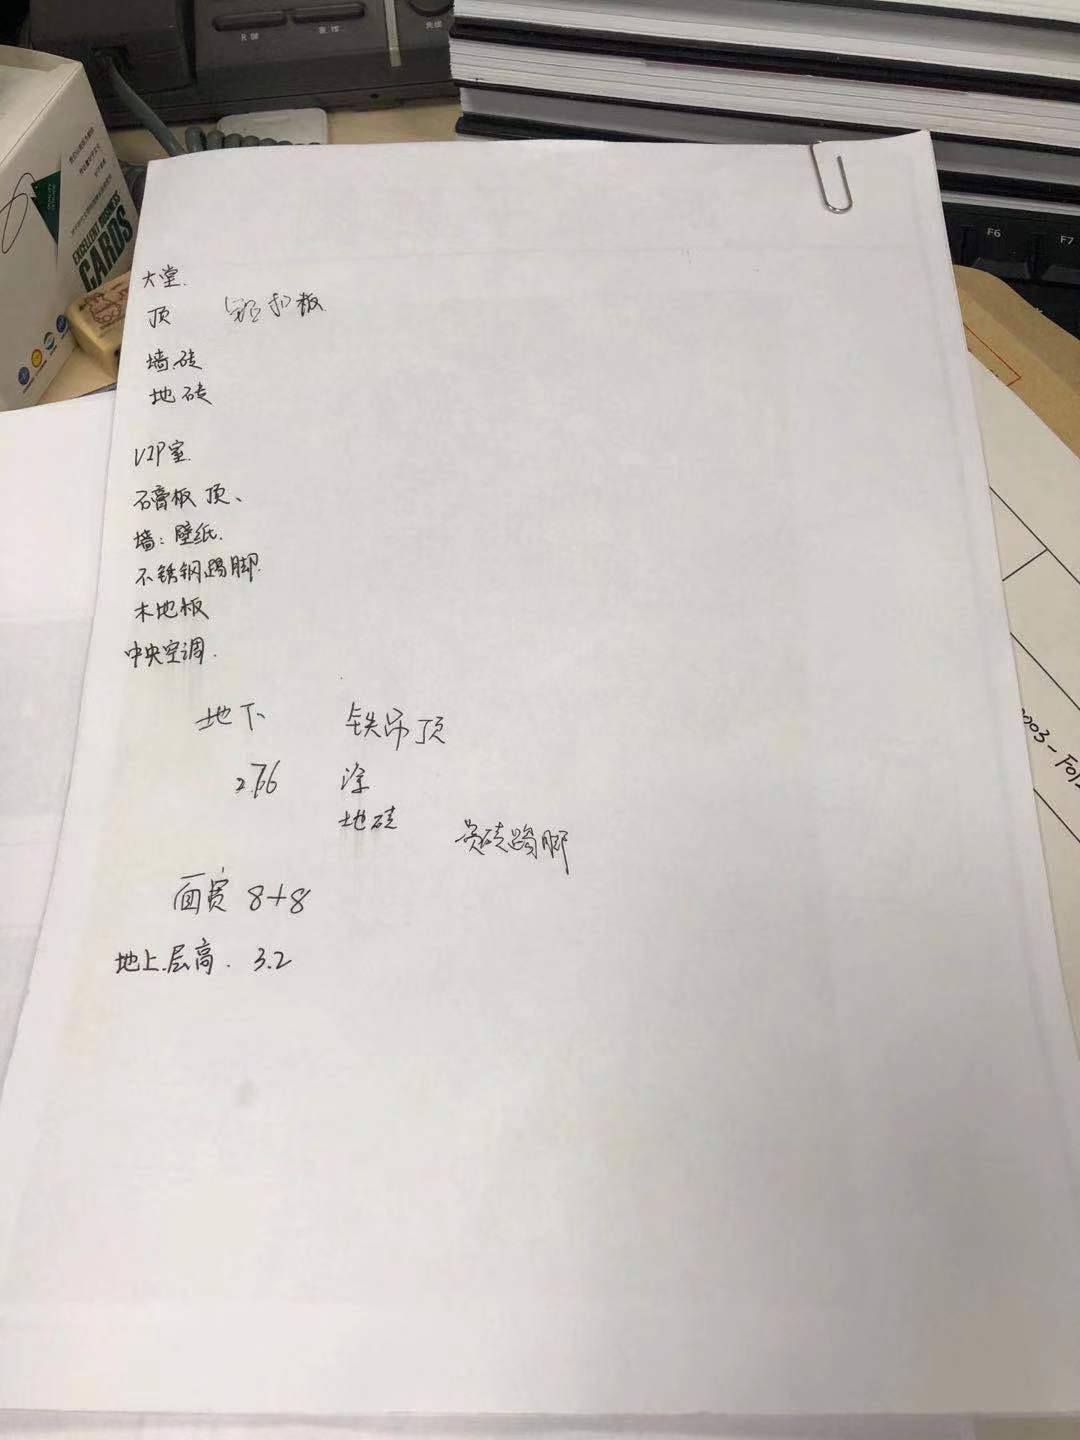 R 键
重拨
免提
F6
F7
EXCELLENT BUSINESS
CARDS
大堂.
顶 铝扣板
墙砖
地砖
VIP室.
石膏板 顶、
墙：壁纸.
不锈钢踢脚.
木地板
中央空调.
地下 铁吊顶
2.76 涂
地砖
瓷砖踢脚
面宽 8+8
地上.层高. 3.2